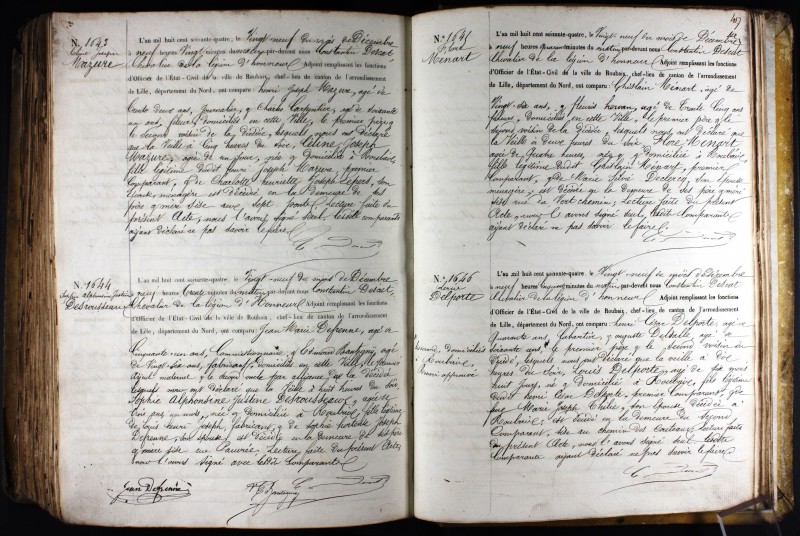 N.º 1643
Mazure
L'an mil huit cent soixante-quatre, le Vingt-neuf du mois de Décembre
à neuf heures Vingt minutes du matin, par-devant nous Constantin Descat
Chevalier de la légion d'honneur Adjoint remplissant les fonctions
d'Officier de l'État-Civil de la ville de Roubaix, chef-lieu de canton de l'arrondissement
de Lille, département du Nord, ont comparu: henri Joseph Mazure, âgé de
trente deux ans, Journalier, & Charles Carpentier, âgé de soixante
un ans, fileur, domiciliés en cette Ville, le premier père &
le second voisin de la Décédée, lesquels nous ont Déclaré
que la Veille à Cinq heures du Soir, Céline Joseph
Mazure, âgée de un Jour, née & Domiciliée à Roubaix,
fille légitime dudit henri Joseph Mazure, premier
Comparant, & de Charlotte henriette Joseph Lepers, son
épouse, ménagère, est Décédée en la Demeure de ses
père & mère Sise aux Sept ponts; Lecture faite du
présent Acte, nous l'avons Signé Seul, lesdits comparants
ayant déclaré ne pas savoir le faire.
N.º 1644
Sophie Alphonsine Justine
Desrousseaux
L'an mil huit cent soixante-quatre, le Vingt-neuf du mois de Décembre
à neuf heures Trente minutes du matin, par-devant nous Constantin Descat,
Chevalier de la légion d'Honneur Adjoint remplissant les fonctions
d'Officier de l'État-Civil de la ville de Roubaix, chef-lieu de canton de l'arrondissement
de Lille, département du Nord, ont comparu: Jean Marie Defrenne, âgé de
Cinquante un ans, Commissionnaire, & Edmond
de Vingt-six ans, fabricant, domiciliés en cette Ville, le premier
Ayeul maternel & le second oncle par alliance de la Décédée
lesquels nous ont déclaré que la Veille à huit heures du Soir
Sophie Alphonsine Justine Desrousseaux, âgée de
Trois ans, un mois, née & domiciliée à Roubaix, fille légitime
de Louis henri Joseph, fabricant, & de Sophie Joseph
Defrenne, son épouse, est décédée en la Demeure de ses père
& mère sise rue Pauvrée. Lecture faite du présent Acte,
nous l'avons Signé avec lesdits Comparants.
Jean Defrenne
N.º 1645
Flore
Menart
L'an mil huit cent soixante-quatre, le Vingt-neuf du mois de Décembre
à neuf heures minutes du matin, par-devant nous Constantin Descat
Chevalier de la légion d'honneur Adjoint remplissant les fonctions
d'Officier de l'État-Civil de la ville de Roubaix, chef-lieu de canton de l'arrondissement
de Lille, département du Nord, ont comparu: Ghislain Menart, âgé de
Vingt-six ans, & fleuris âgé de Trente Cinq ans
fileurs, Domiciliés en cette Ville, le premier père & le
second voisin de la Décédée lesquels nous ont Déclaré que
la Veille à deux heures du Soir Flore Menart
âgée de Quatre heures, née & Domiciliée à Roubaix,
fille légitime dudit Ghislain Menart, premier
Comparant, & de Marie Silvie Declercq, son épouse
ménagère; est décédée en la demeure de ses père & mère
sise rue du Vert chemin; Lecture faite du présent
Acte, nous l'avons Signé seul, lesdits Comparants
ayant déclaré ne pas savoir le faire.
N.º 1646
Louis
Delporte
L'an mil huit cent soixante-quatre, le Vingt-neuf du mois de Décembre
à neuf heures minutes du matin, par-devant nous Constantin Descat
Chevalier de la légion d'honneur Adjoint remplissant les fonctions
d'Officier de l'État-Civil de la ville de Roubaix, chef-lieu de canton de l'arrondissement
de Lille, département du Nord, ont comparu: henri César Delporte, âgé de
Quarante ans, & Auguste Delporte, âgé de
soixante ans, le premier père & le second voisin du
Décédé, lesquels nous ont Déclaré que la veille à dix
heures du Soir, Louis Delporte, âgé de six mois
huit jours, né & domicilié à Roubaix, fils légitime
dudit henri César Delporte, premier Comparant, & de
Marie Joseph son épouse décédée à
Roubaix; est décédé en la demeure du Second
Comparant, sise au chemin des Lecture faite
du présent Acte, nous l'avons Signé seul lesdits
Comparants ayant déclaré ne pas savoir le faire.
domiciliés
à Roubaix,
Renvoi approuvé